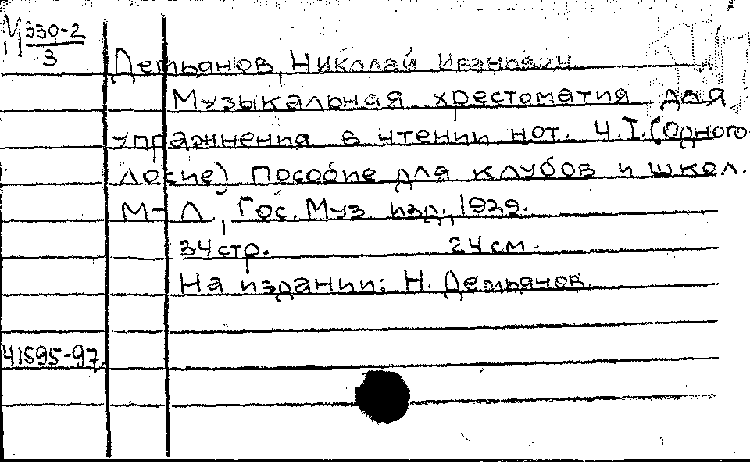 М 330-2
3
Демьянов, Николай Иванович
Музыкальная хрестоматия для
упражнения в чтении нот. Ч.I. (Одного-
лосие) Пособие для клубов и школ.
М-Л., Гос. Муз. изд., 1929.
34 стр. 24 см.
На издании: Н. Демьянов.
41595-97.